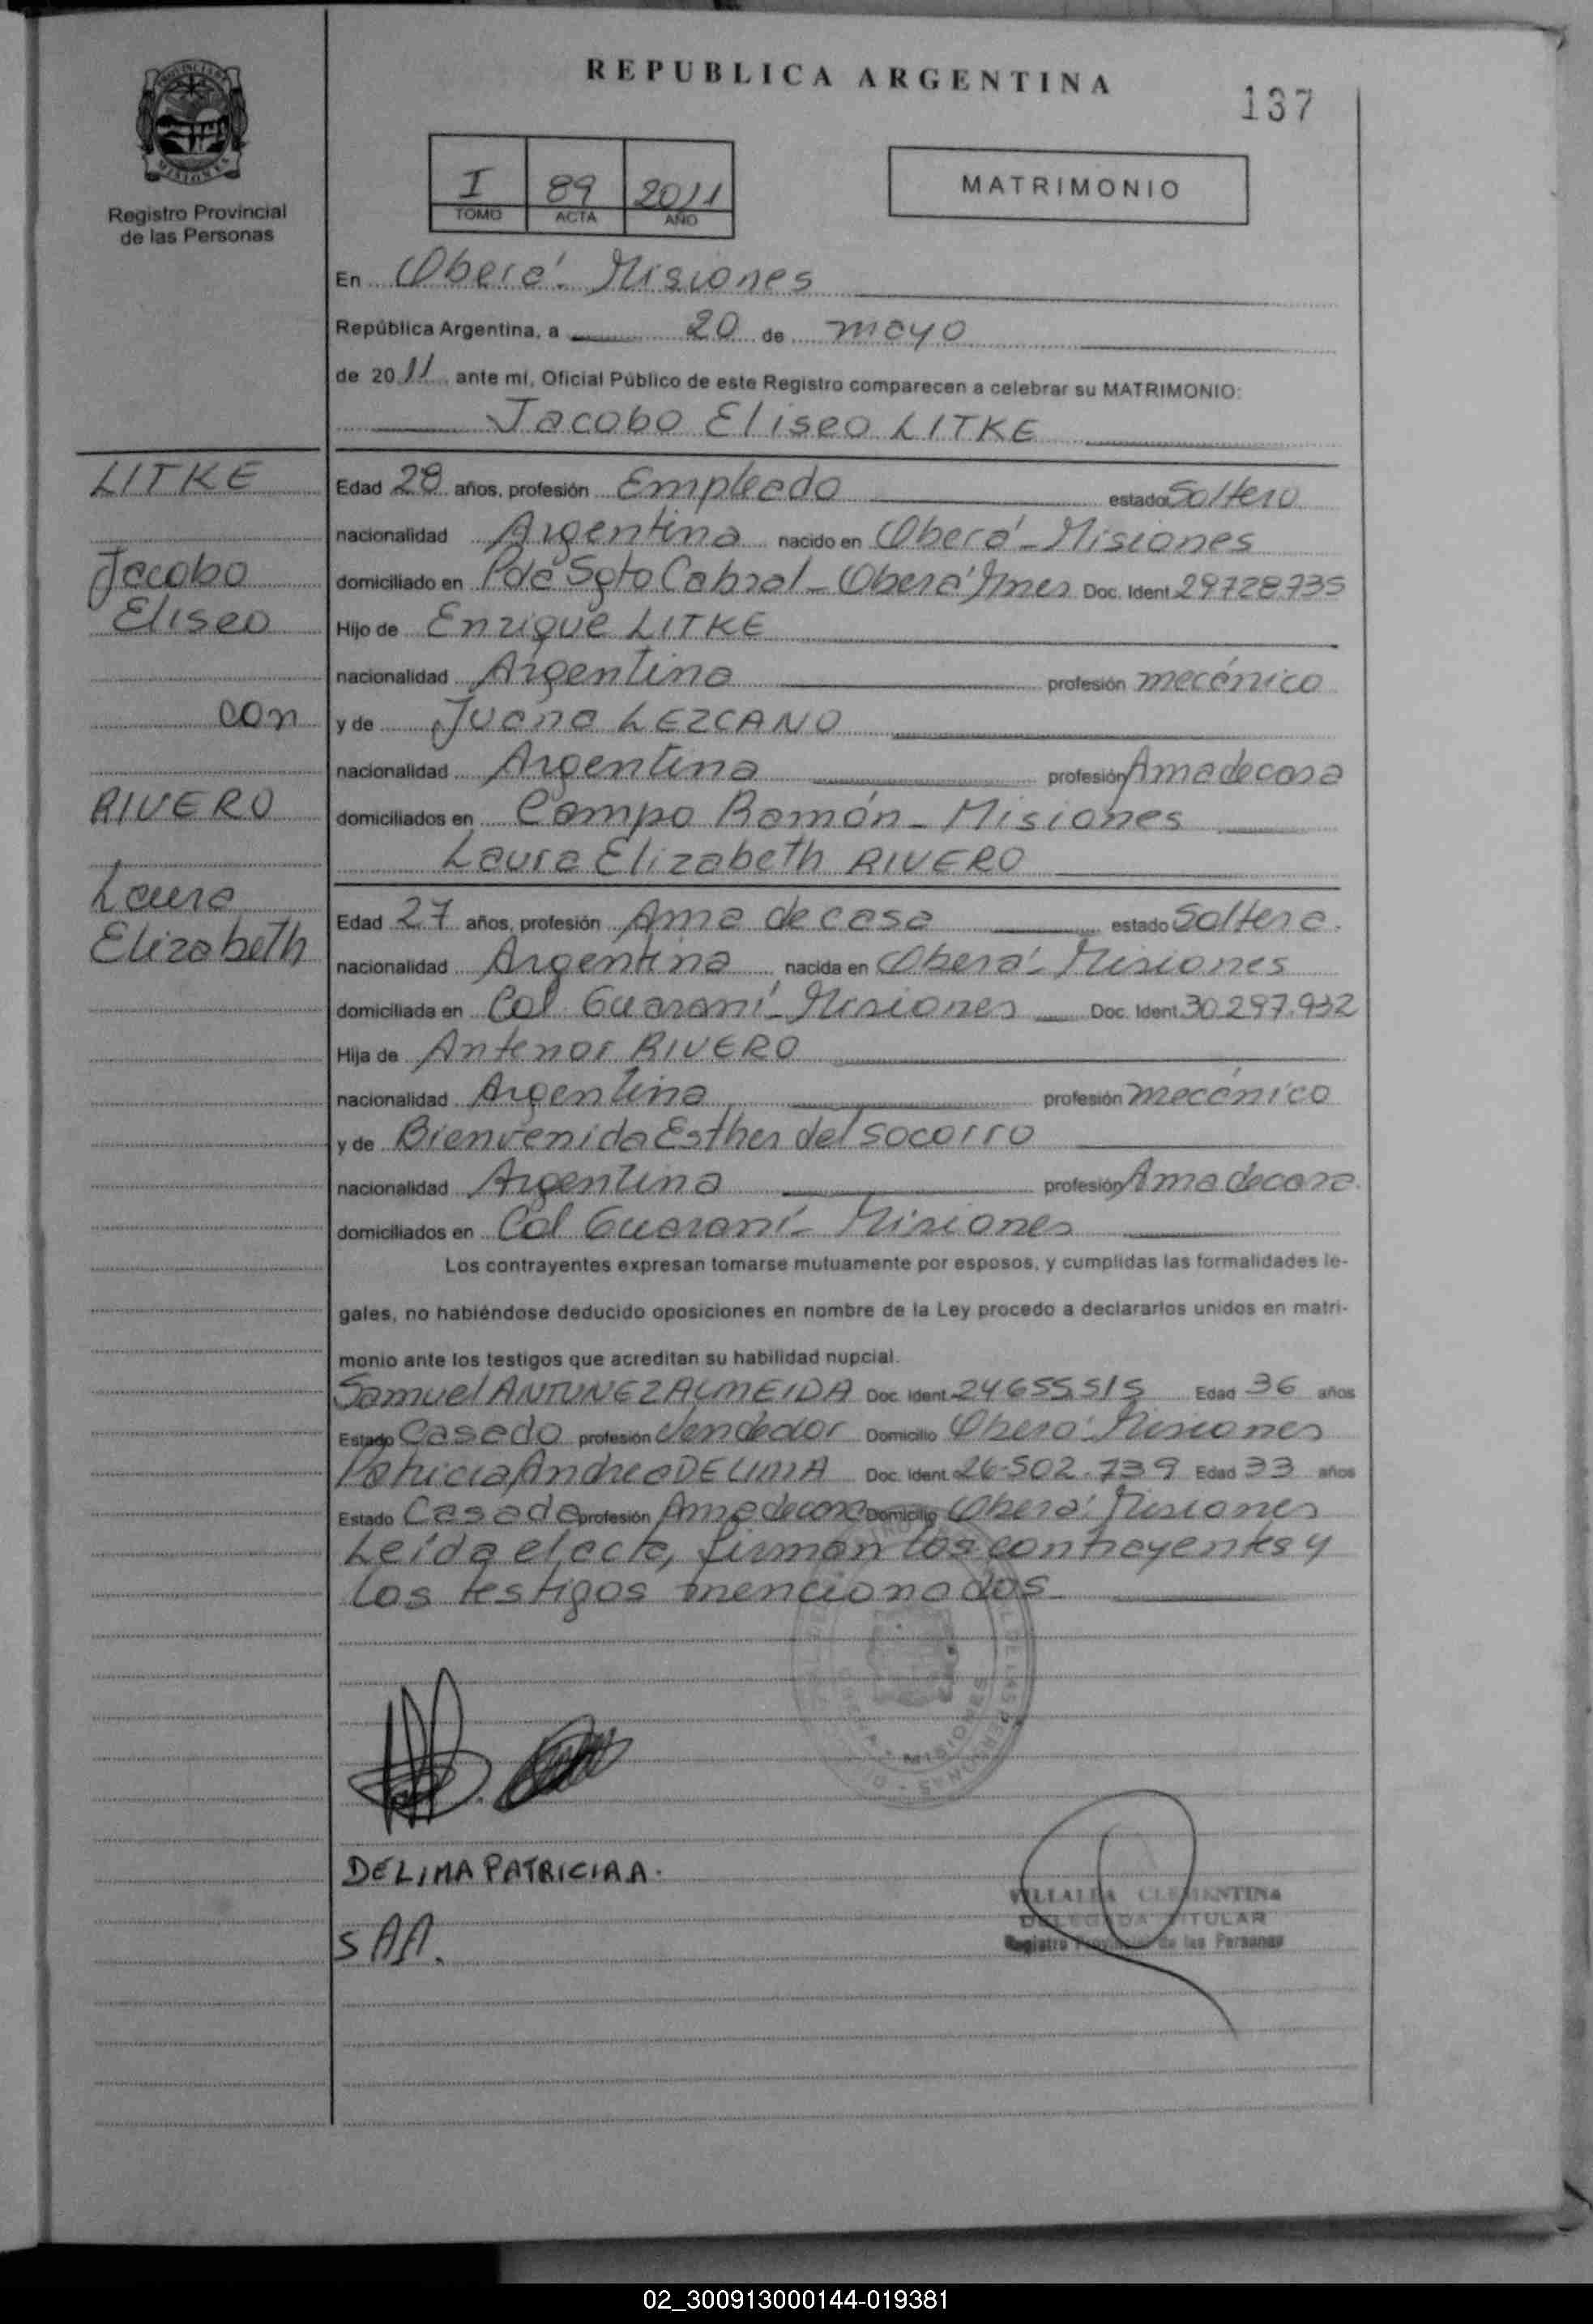 REPUBLICA ARGENTINA
137
PROVINCIA DE
MISIONES
Registro Provincial
de las Personas
I 89 2011
TOMO ACTA AÑO
MATRIMONIO
En Oberá - Misiones
República Argentina, a 20 de mayo
de 2011 ante mí, Oficial Público de este Registro comparecen a celebrar su MATRIMONIO:
Jacobo Eliseo LITKE
LITKE
Jacobo
Eliseo
con
RIVERO
Laura
Elizabeth
Edad 28 años, profesión Empleado estado Soltero
nacionalidad Argentina nacido en Oberá - Misiones
domiciliado en Pde Sgto Cabral - Oberá Mnes Doc. Ident 29728.735
Hijo de Enrique LITKE
nacionalidad Argentina profesión mecánico
y de Juana LEZCANO
nacionalidad Argentina profesión Ama de casa
domiciliados en Campo Ramón - Misiones
Laura Elizabeth RIVERO
Edad 27 años, profesión Ama de casa estado Soltera.
nacionalidad Argentina nacida en Oberá - Misiones
domiciliada en Col. Guaraní - Misiones Doc. Ident 30.297.932
Hija de Antenor RIVERO
nacionalidad Argentina profesión mecánico
y de Bienvenida Esther del Socorro
nacionalidad Argentina profesión Ama de casa.
domiciliados en Col Guaraní - Misiones
Los contrayentes expresan tomarse mutuamente por esposos, y cumplidas las formalidades le-
gales, no habiéndose deducido oposiciones en nombre de la Ley procedo a declararlos unidos en matri-
monio ante los testigos que acreditan su habilidad nupcial.
Samuel ANTUNEZ ALMEIDA Doc. Ident 24655.515 Edad 36 años
Estado Casado profesión Vendedor Domicilio Oberá - Misiones
Patricia Andrea DE LIMA Doc. Ident. 26.502.739 Edad 33 años
Estado Casada profesión Ama de casa Domicilio Oberá - Misiones
Leída el acta, firman los contrayentes y
los testigos mencionados
MISIONES
DE LIMA PATRICIA A.
S A A.
VILLALBA CLEMENTINA
DELEGADA TITULAR
Registro Provincial de las Personas
02_300913000144-019381